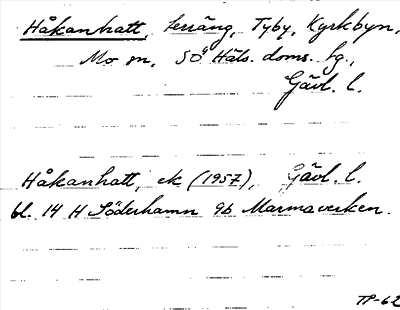 Håkanhatt, terräng, Tyby, Kyrkbyn,
Mo sn, SÖ Häls. doms. fg.,
Gävl. l.
Håkanhatt, ek (1957), Gävl. l.
bl. 14 H Söderhamn 9b Marmaverken.
TP-62